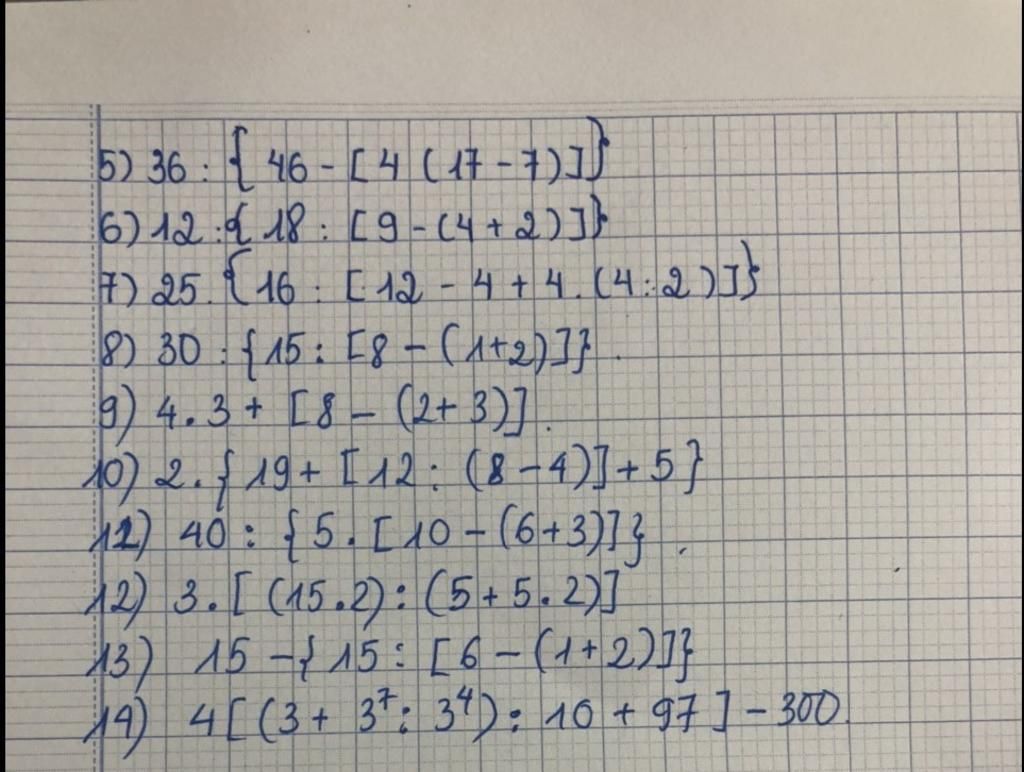 5) 36 : { 46 - [ 4 ( 17 - 7 ) ] }
6) 12 : { 18 : [ 9 - ( 4 + 2 ) ] }
7) 25 . { 16 : [ 12 - 4 + 4 . ( 4 : 2 ) ] }
8) 30 : { 15 : [ 8 - ( 1 + 2 ) ] } .
9) 4 . 3 + [ 8 - ( 2 + 3 ) ] .
10) 2 . { 19 + [ 12 : ( 8 - 4 ) ] + 5 }
11) 40 : { 5 . [ 10 - ( 6 + 3 ) ] } .
12) 3 . [ ( 15 . 2 ) : ( 5 + 5 . 2 ) ]
13) 15 - { 15 : [ 6 - ( 1 + 2 ) ] }
14) 4 [ ( 3 + 3⁷ : 3⁴ ) : 10 + 97 ] - 300